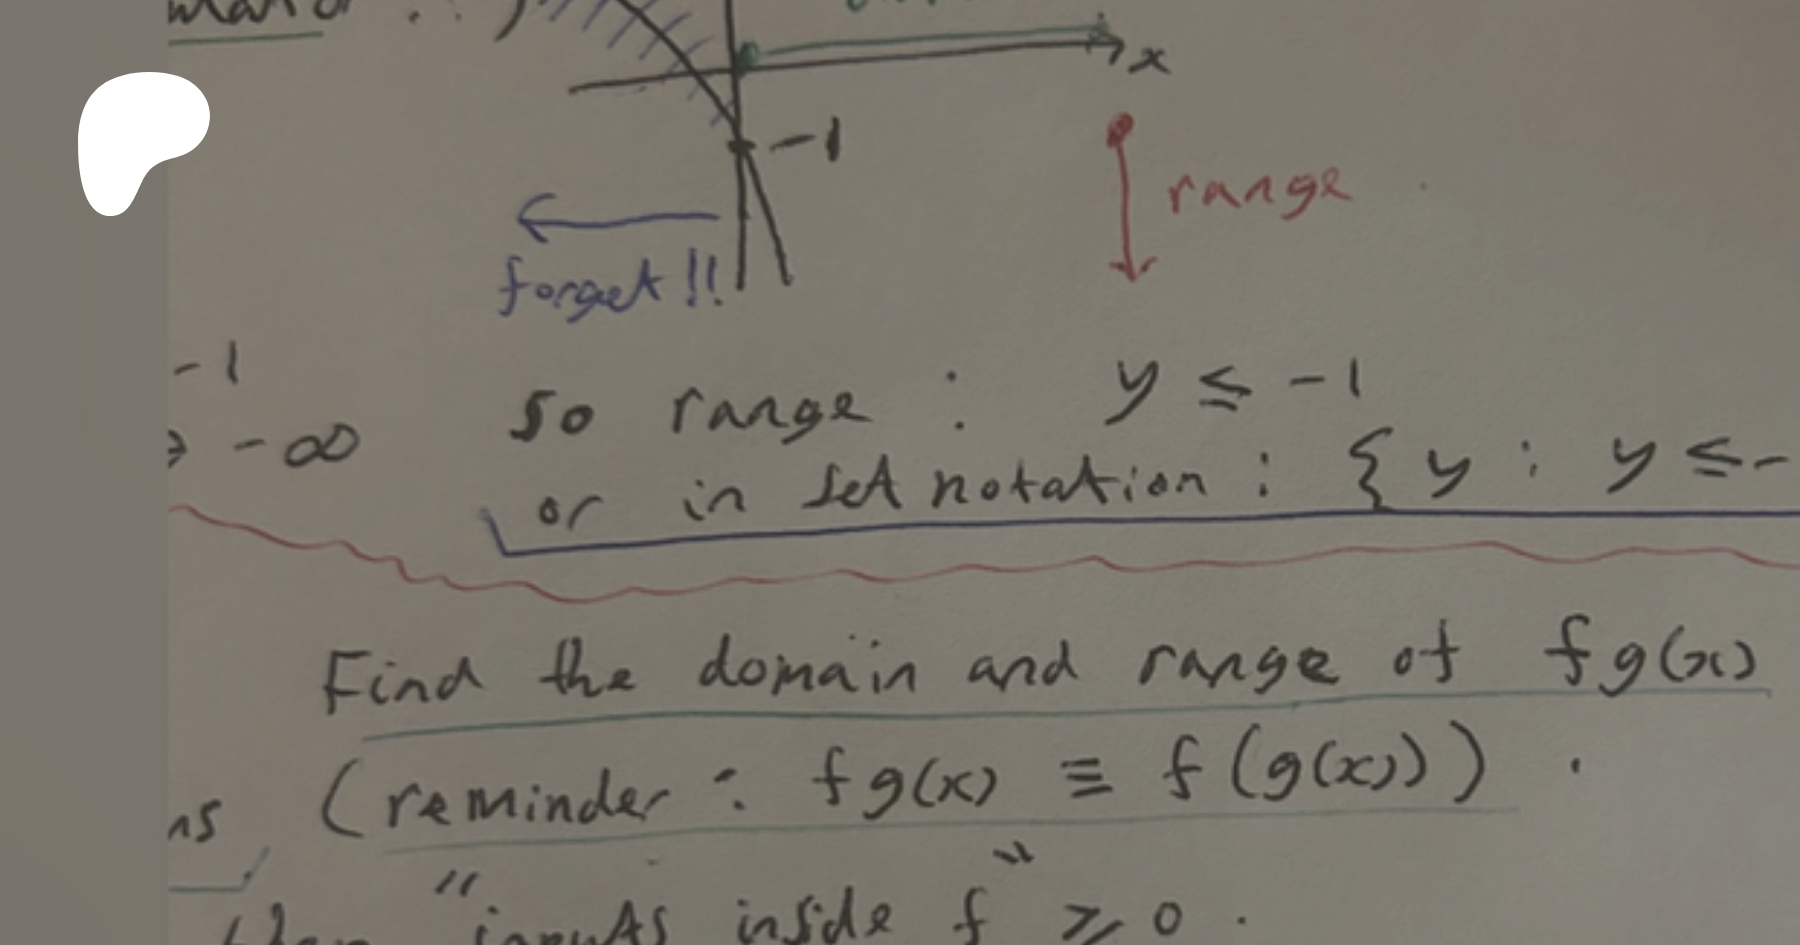 x
-1
range
forget !!
-1
so range : y ≤ -1
→ -∞
or in set notation : { y : y ≤ -
Find the domain and range of fg(x)
(reminder : fg(x) ≡ f(g(x)) .
ns
"inputs inside f" ≥ 0 .